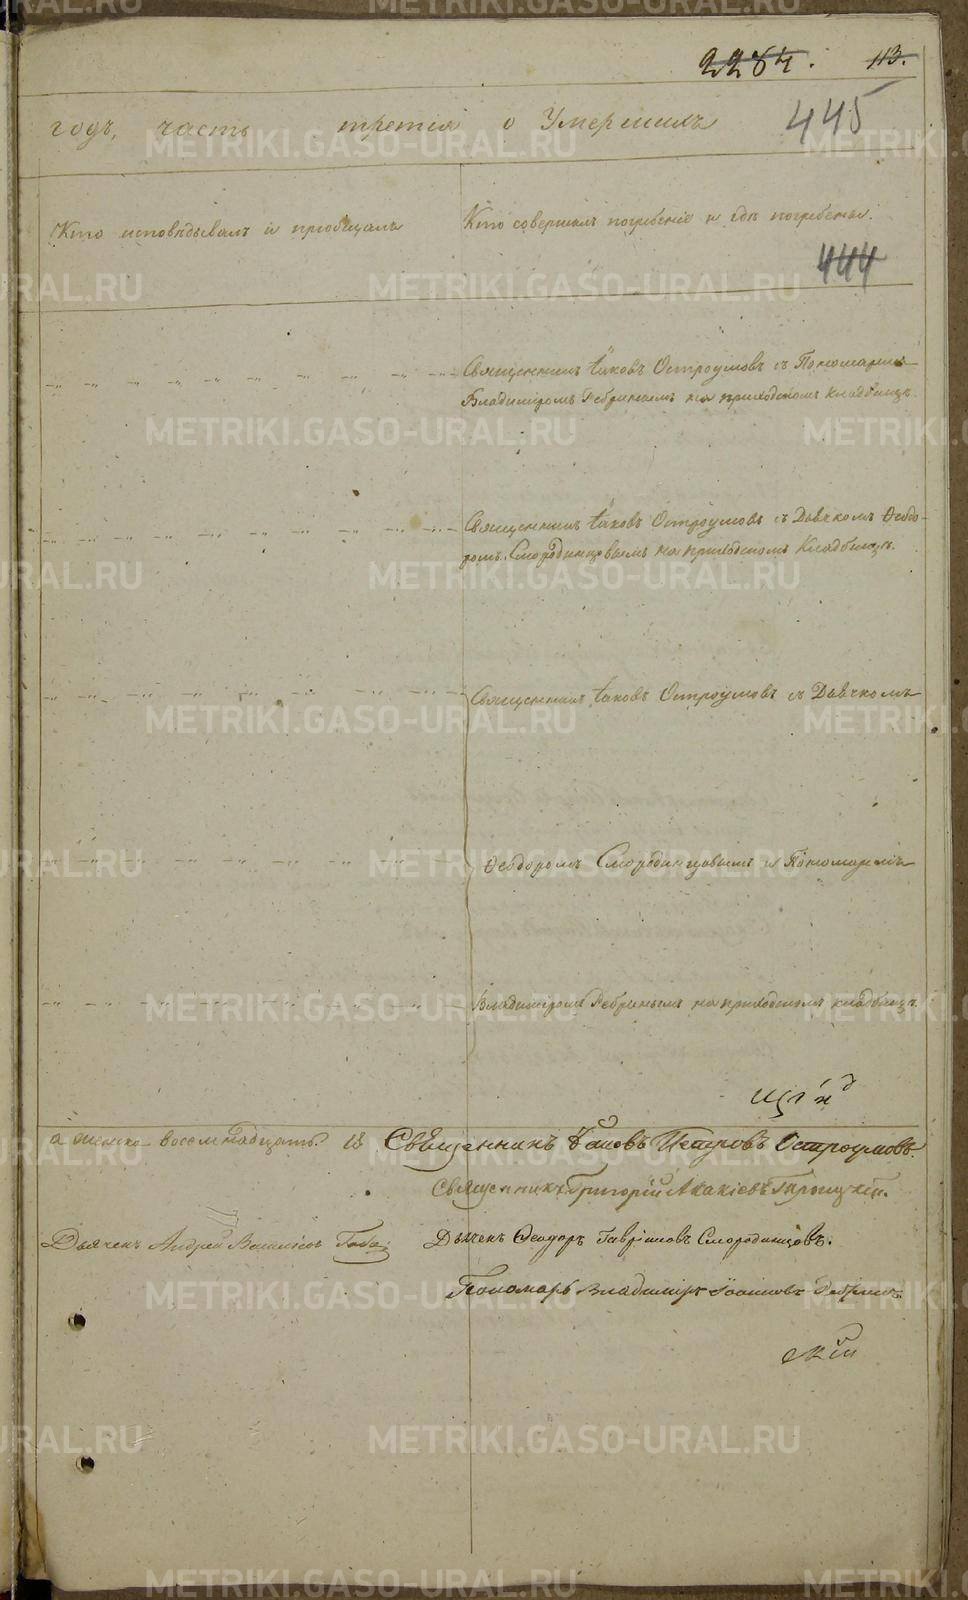 2284. 113.
годъ, часть третія о Умершихъ 445
Кто исповѣдывалъ и пріобщалъ
Кто совершалъ погребеніе и гдѣ погребены.
444
Священникъ Іаковъ Остроумовъ съ Пономаремъ
Владиміромъ Ребринымъ на приходскомъ кладбищѣ.
Священникъ Іаковъ Остроумовъ съ Дьячкомъ Ѳеодо-
ромъ Смородинцовымъ на приходскомъ кладбищѣ.
Священникъ Іаковъ Остроумовъ съ Дьячкомъ
Ѳеодоромъ Смородинцовымъ и Пономаремъ
Владиміромъ Ребринымъ на приходскомъ кладбищѣ.
а женска восемнадцать. 18 Священникъ Іаковъ Петровъ Остроумовъ.
Священникъ Григорій Акакіевъ Троицкій.
Дьячекъ Андрей
Дьячекъ Ѳеодоръ Гавріиловъ Смородинцовъ.
Пономарь Владиміръ Іоанновъ Ребринъ.
METRIKI.GASO-URAL.RU